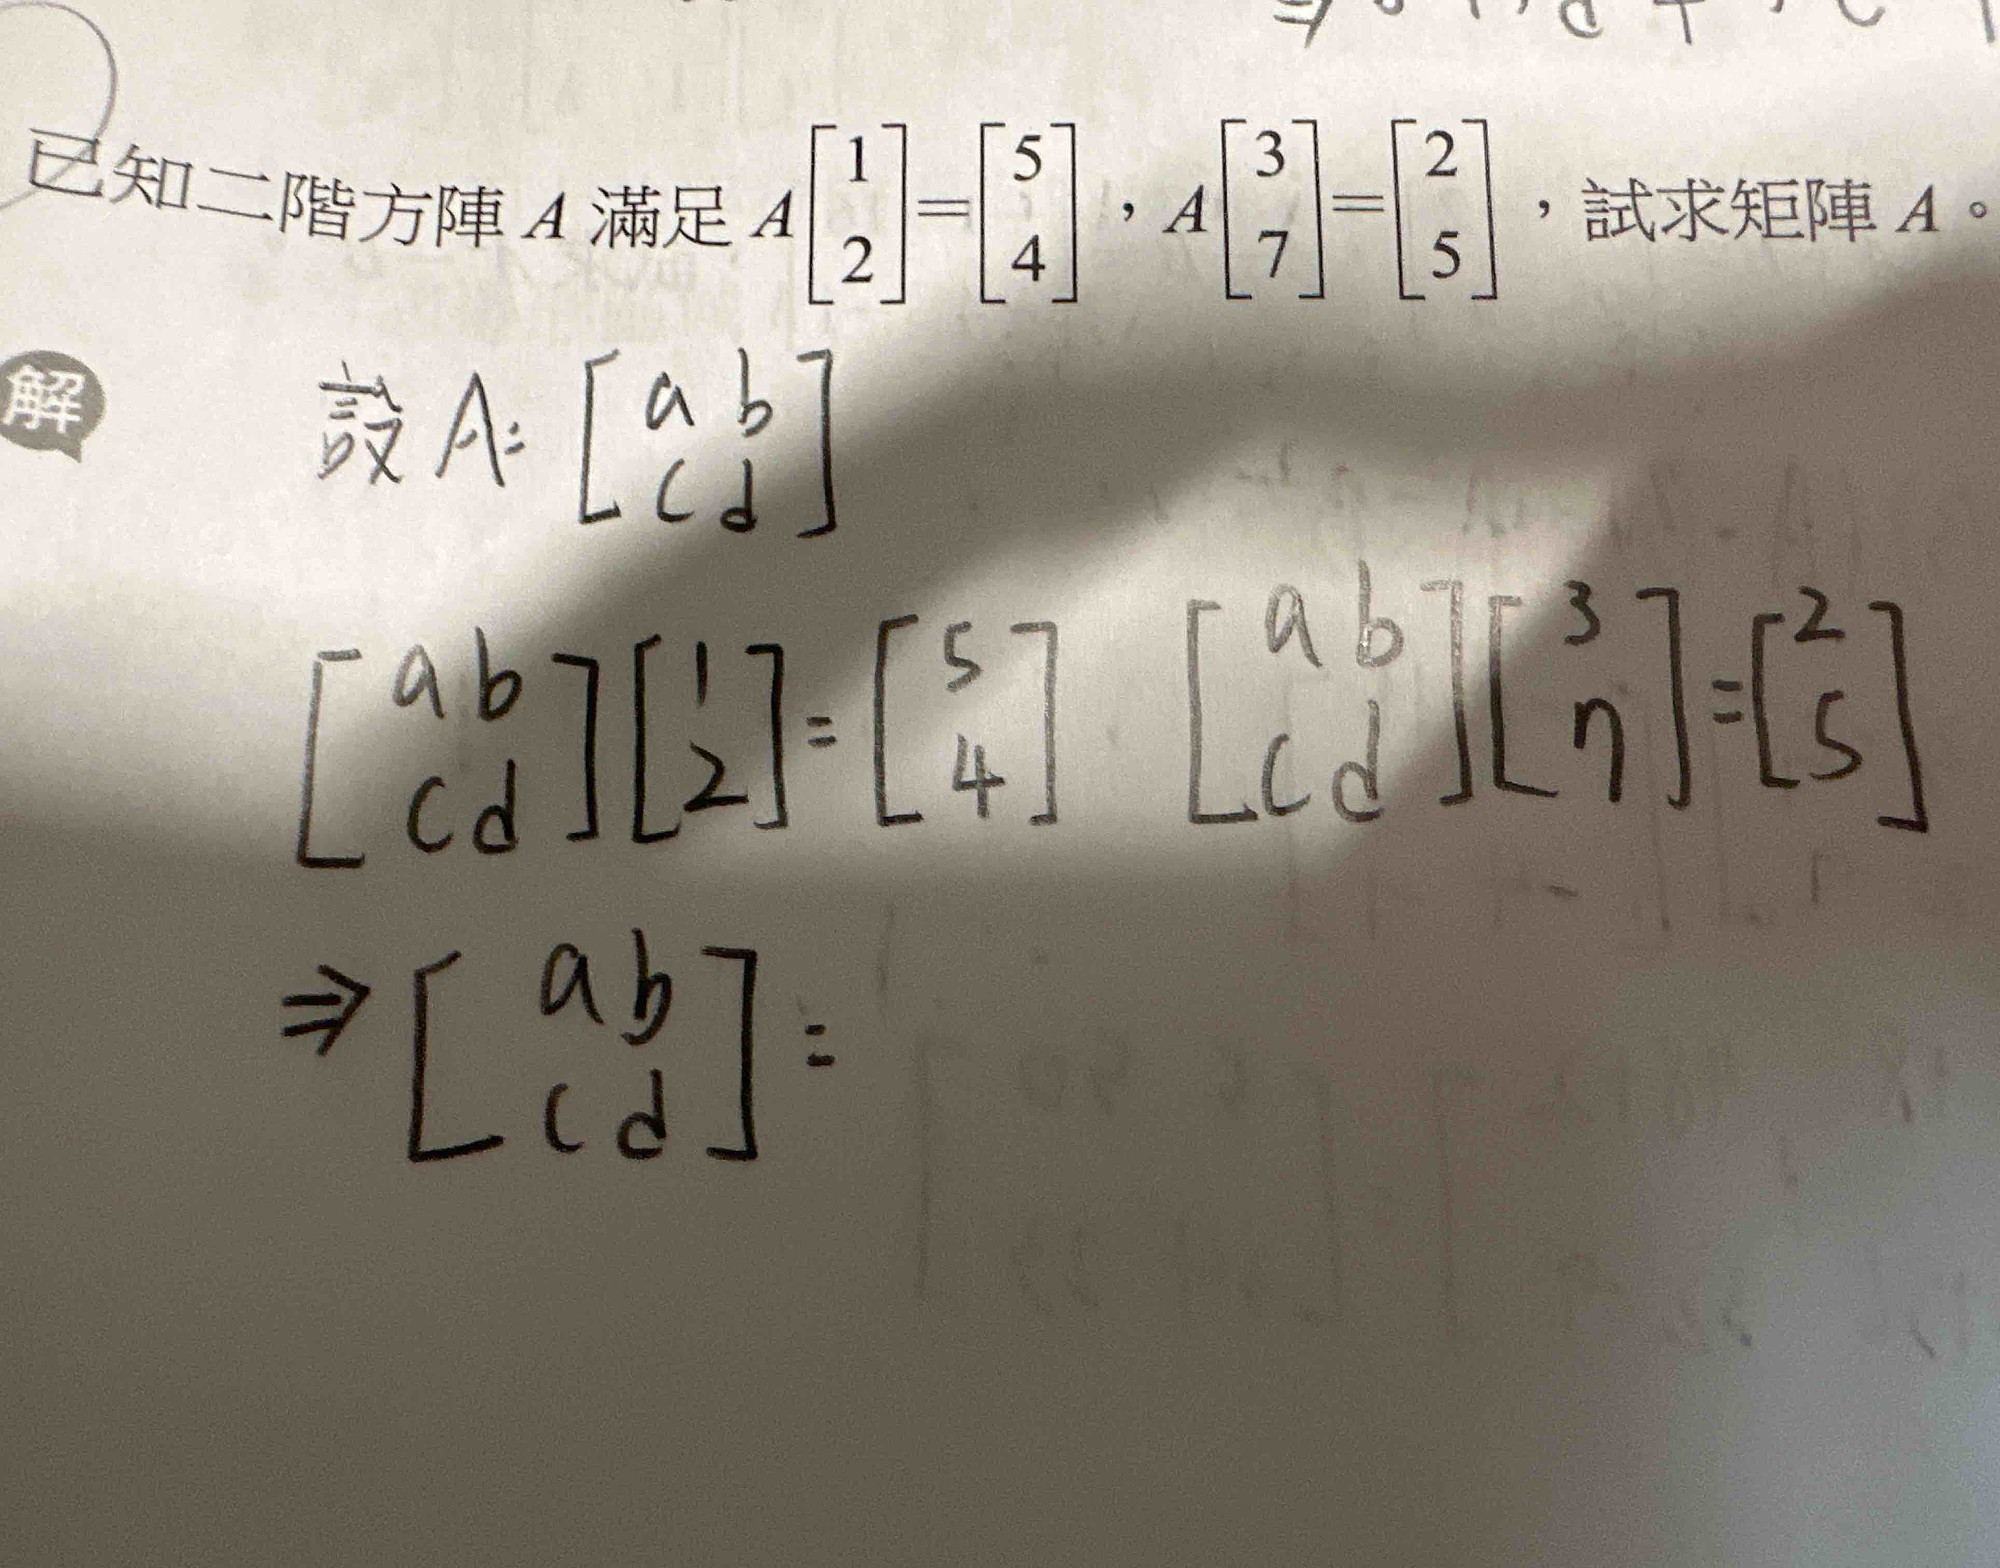 已知二階方陣 A 滿足 A[1 2]=[5 4]，A[3 7]=[2 5]，試求矩陣 A。
解
設 A = [a b c d]
[a b c d][1 2] = [5 4] [a b c d][3 7] = [2 5]
⇒ [a b c d] =